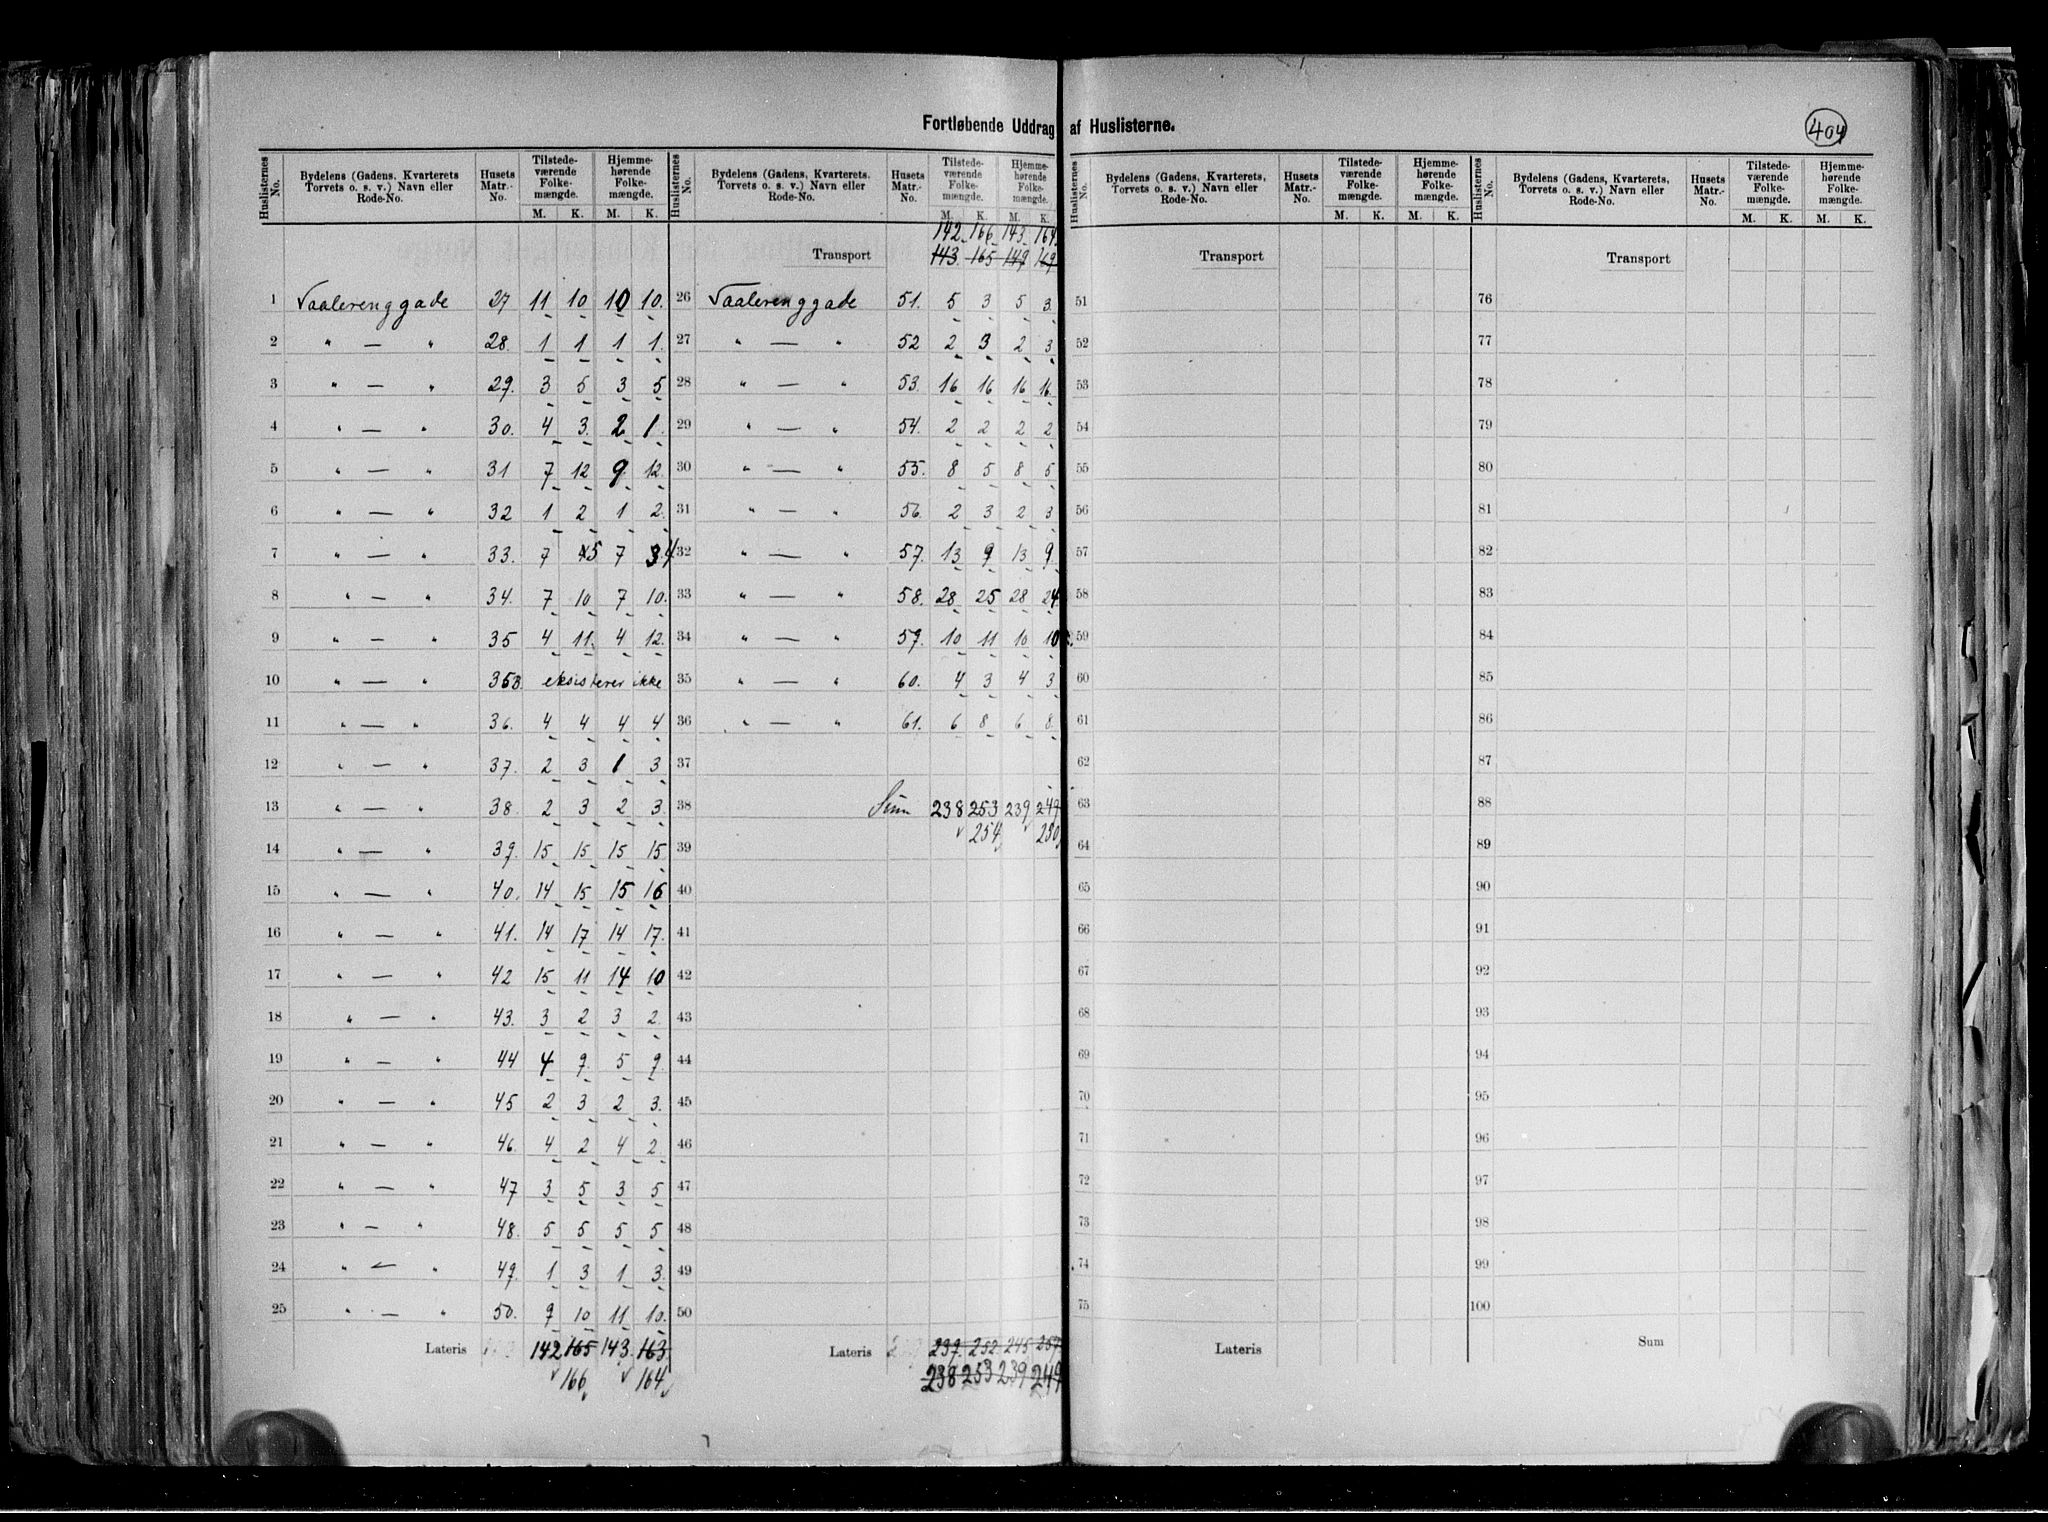 Fortløbende Uddrag af Huslisterne.
404
Huslisternes No. | Bydelens (Gadens, Kvarterets, Torvets o. s. v.) Navn eller Rode-No. | Husets Matr.-No. | Tilstede-værende Folke-mængde. M. K. | Hjemme-hørende Folke-mængde. M. K.
1 Vaalerenggade 27 11 10 10 10.
2 " — " 28. 1 1 1 1.
3 " — " 29. 3 5 3 5
4 " — " 30. 4 3. 2 1.
5 " — " 31 7 12 9 12.
6 " — " 32 1 2 1 2.
7 " — " 33. 7 5 7 4
8 " — " 34. 7 10 7 10.
9 " — " 35 4 11. 4 12.
10 " — " 35B. eksisterer ikke
11 " — " 36. 4 4 4 4
12 " — " 37. 2 3 1 3
13 " — " 38. 2 3 2 3.
14 " — " 39. 15 15 15 15
15 " — " 40. 14 15 15 16
16 " — " 41. 14 17 14 17.
17 " — " 42 15 11 14 10
18 " — " 43. 3 2 3 2.
19 " — " 44 4 9. 5 9.
20 " — " 45 2 3 2 3.
21 " — " 46. 4 2 4 2.
22 " — " 47 3 5 3 5
23 " — " 48. 5 5 5 5
24 " — " 49. 1 3 1 3.
25 " — " 50. 9 10 11 10.
Lateris 142 165 143. 163.
166 164
Huslisternes No. | Bydelens (Gadens, Kvarterets, Torvets o. s. v.) Navn eller Rode-No. | Husets Matr.-No. | Tilstede-værende Folke-mængde. M. K. | Hjemme-hørende Folke-mængde. M. K.
142 166 143 164
Transport 143. 165 149 169
26 Vaalerenggade 51. 5 3 5 3.
27 " — " 52 2 3 2 3
28 " — " 53. 16 16 16 16.
29 " — " 54. 2 2 2 2
30 " — " 55. 8 5 8 5
31 " — " 56. 2 3 2 3
32 " — " 57. 13 9 13 9.
33 " — " 58. 28 25 28 24
34 " — " 59. 10 11 10 10
35 " — " 60. 4 3 4 3
36 " — " 61. 6 8 6 8
37
38 Sum 238 253 239 249
254 250
39
40
41
42
43
44
45
46
47
48
49
50
Lateris 237. 252. 245 257
238 253 239 249
Huslisternes No. | Bydelens (Gadens, Kvarterets, Torvets o. s. v.) Navn eller Rode-No. | Husets Matr.-No. | Tilstede-værende Folke-mængde. M. K. | Hjemme-hørende Folke-mængde. M. K.
Transport
51
52
53
54
55
56
57
58
59
60
61
62
63
64
65
66
67
68
69
70
71
72
73
74
75
Lateris
Huslisternes No. | Bydelens (Gadens, Kvarterets, Torvets o. s. v.) Navn eller Rode-No. | Husets Matr.-No. | Tilstede-værende Folke-mængde. M. K. | Hjemme-hørende Folke-mængde. M. K.
Transport
76
77
78
79
80
81
82
83
84
85
86
87
88
89
90
91
92
93
94
95
96
97
98
99
100
Sum